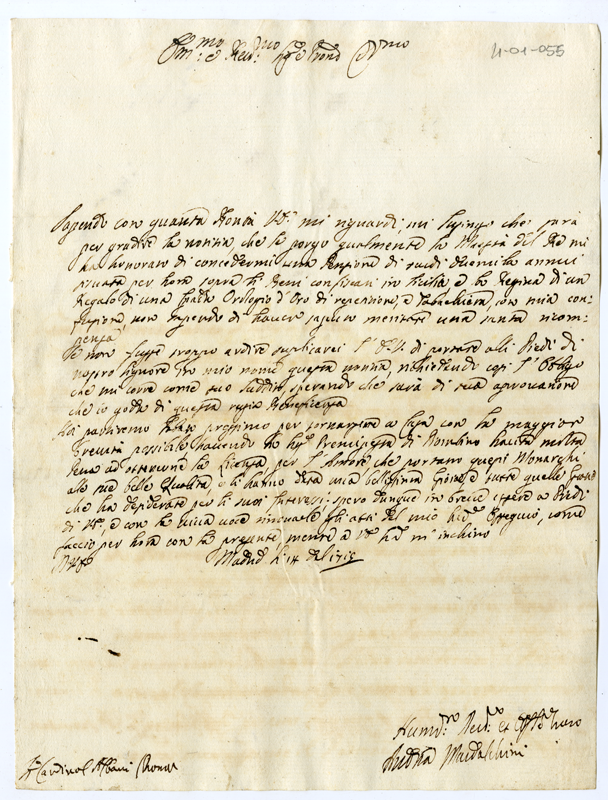 Em.mo e Rev.mo Sig.e Prone
4-01-055
Sapendo con quanta Bontà V.E. mi riguardi, mi lusingo che sarà
per gradire la notizia, che le porgo qualmente la Maestà del Re mi
ha honorato di concedermi una Pensione di scudi duemila annui
per hora sopra li Beni confiscati in Sicilia e la Regina di un
Regalo di una Orologio d'Oro di repetitione, e Tabachiera, con mia con-
fusione non sapendo di havere saputo meritare una tanta ricom-
penza
Se non fusse troppo ardire supplicarei l'E.V. di portare alli Piedi di
nostro Signore in mio nome questa notizia, richiedendo così l'Obligo
che mi corre come suo suddito sperando che sarà di sua aprovazione
che io goda di questa regia Beneficenza
Noi partiremo prossimo per tornarsene a Casa con la maggior
brevità possibile havendo la Sig.ra Principessa di Piombino havuta molta
pena ad ottenerne la Licenza, per l'Amore che portano questi Monarchi
alle sue belle Qualità, e li hanno data una bellissima Gioia e tutte quelle Grazie
che ha desiderate per li suoi Interessi: spero dunque in breve essere a Piedi
di V.E. e con la viva voce rinovarle gli atti del mio Ossequio, come
faccio per hora con la presente, mentre a V.E. mi inchino
Madrid li 14 del 1715
Humil.mo Dev.mo et Obl.mo
Andrea Maidalchini
Cardinal Albani Roma